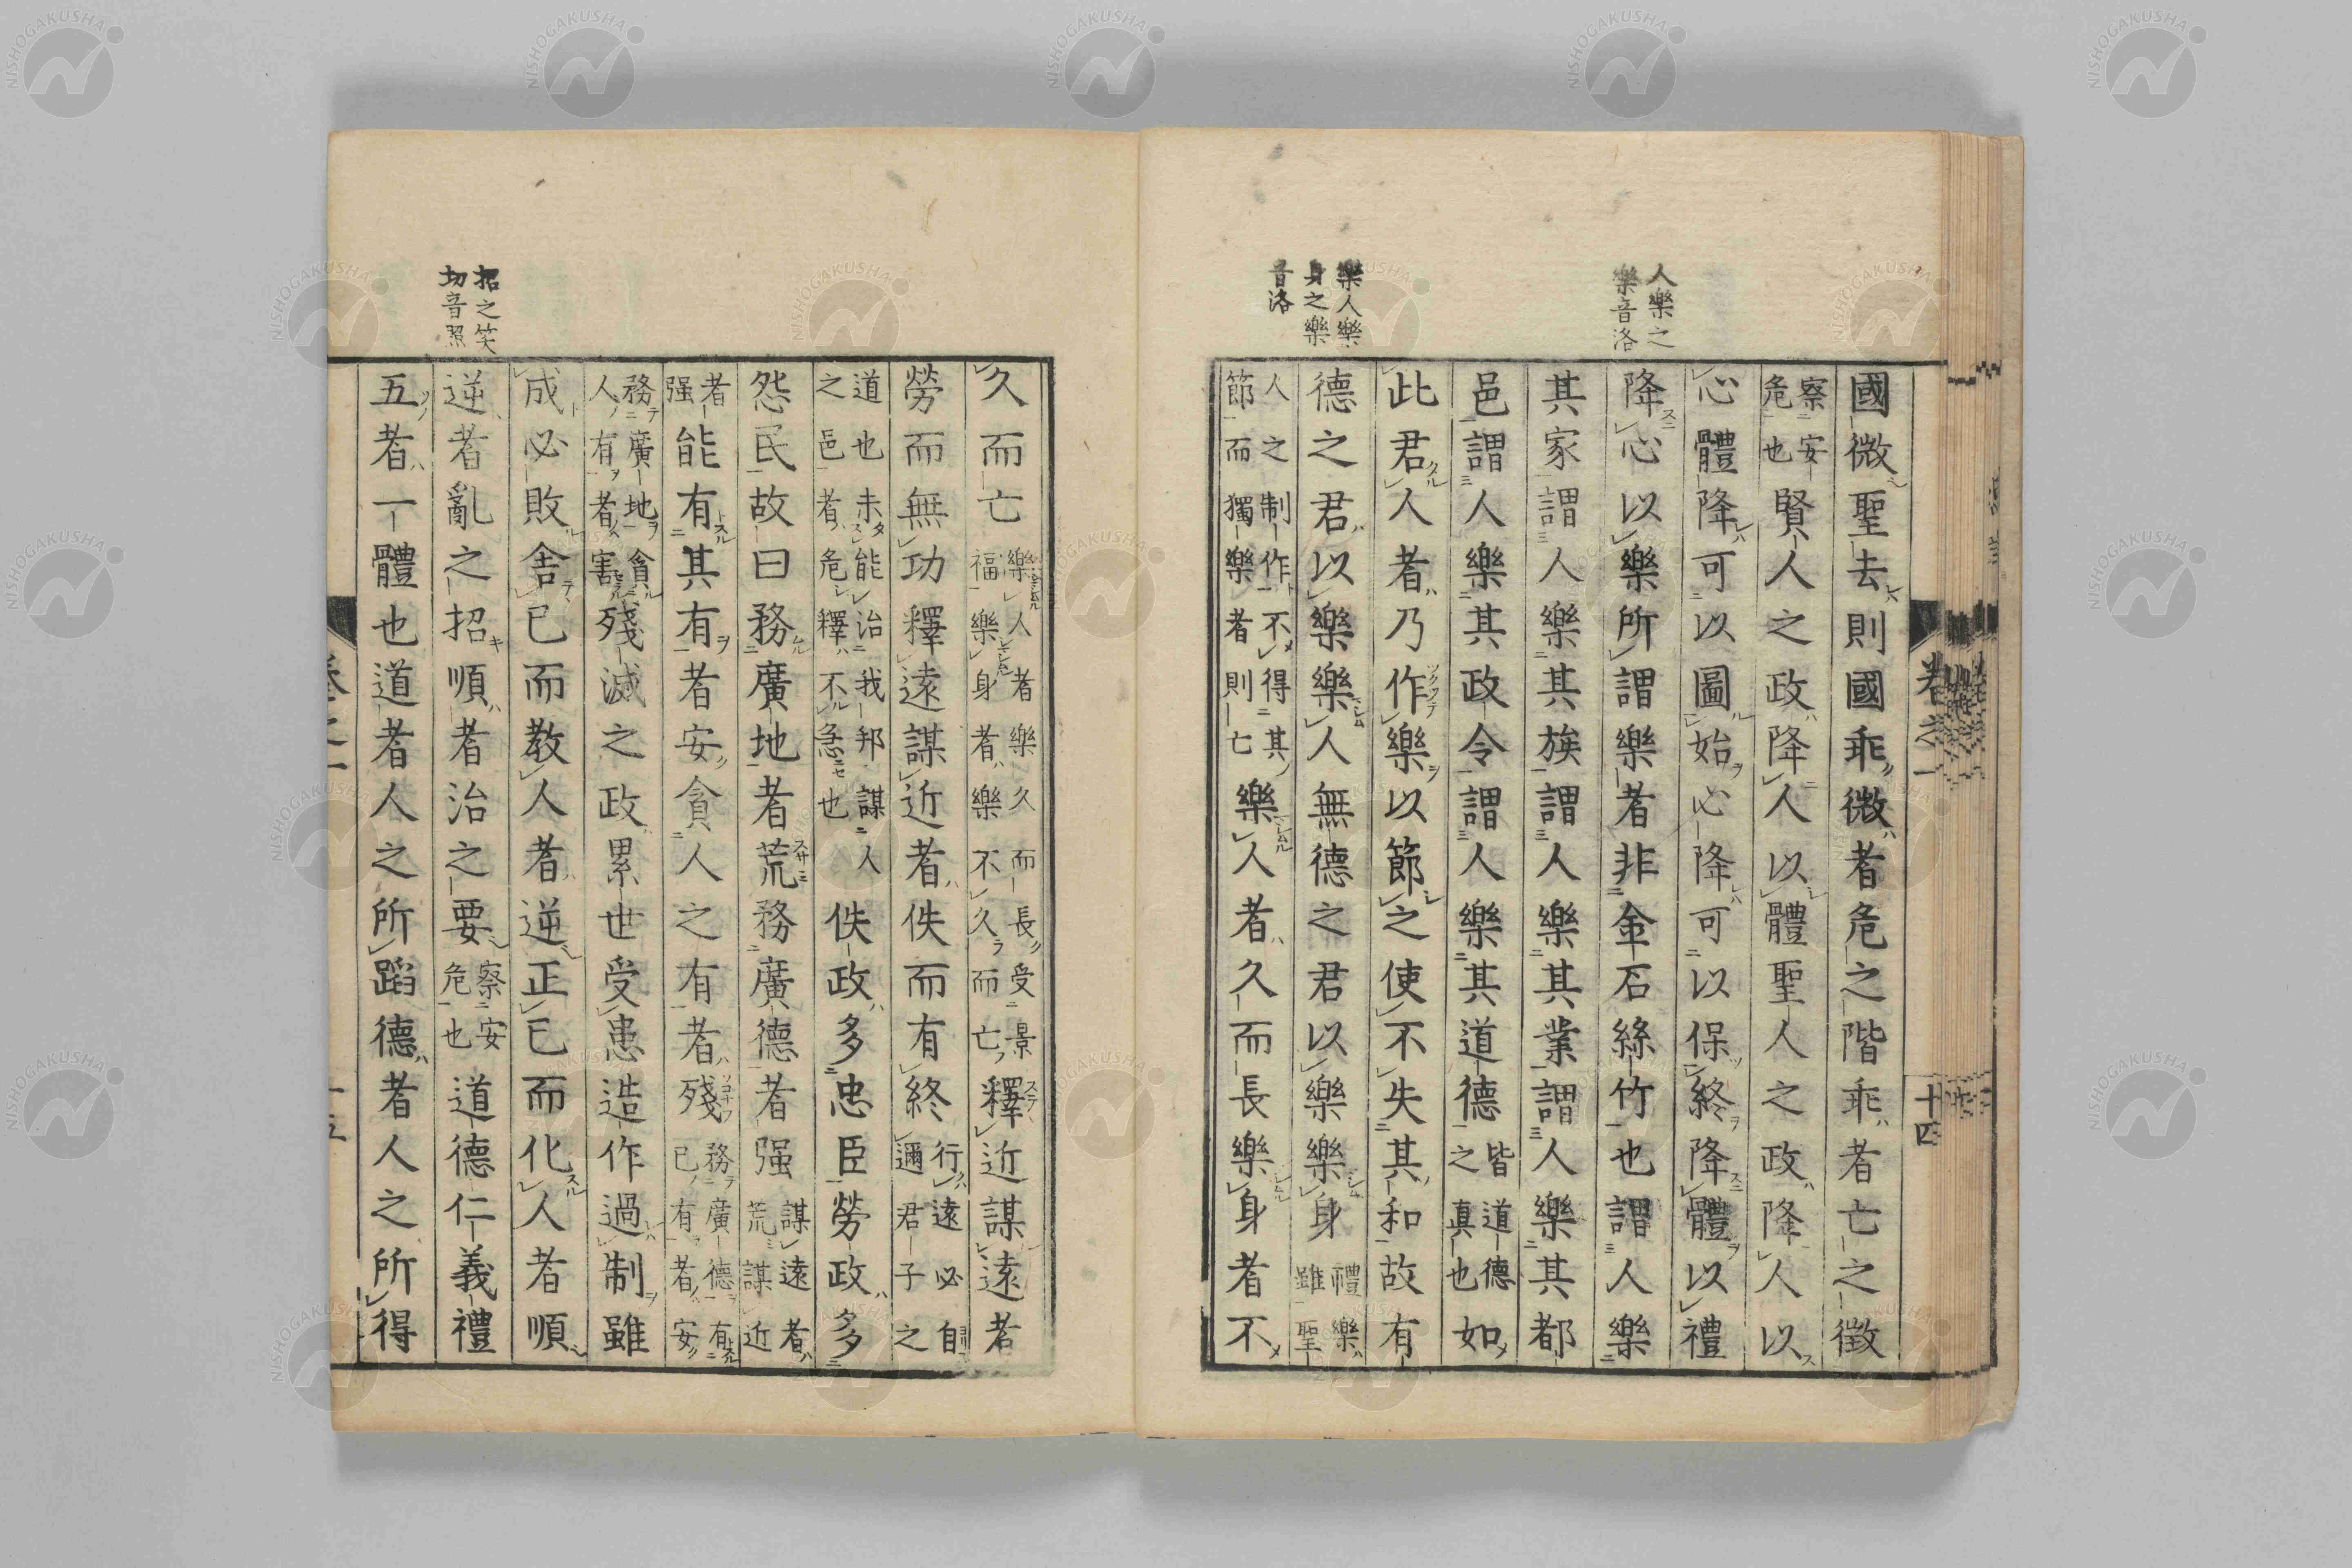 卷之一　十四
人樂之
樂音洛
樂人樂
身之樂
音洛
國微聖去則國乖微者危之階乖者亡之徵
察安危也賢人之政降人以體聖人之政降人以
心體降可以圖始心降可以保終降體以禮
降心以樂所謂樂者非金石絲竹也謂人樂
其家謂人樂其族謂人樂其業謂人樂其都
邑謂人樂其政令謂人樂其道德皆道德之真也如
此君人者乃作樂以節之使不失其和故有
德之君以樂樂人無德之君以樂樂身禮樂雖聖
人之制作不得其節而獨樂者則亡樂人者久而長樂身者不
招之笑
切音照
久而亡樂人者樂久而長受景福樂身者樂不久而亡釋近謀遠者
勞而無功釋遠謀近者佚而有終行遠必自邇君子之
道也未能治我邦謀人之邑者危釋不急也佚政多忠臣勞政多
怨民故曰務廣地者荒務廣德者强謀遠者荒謀近
者强能有其有者安貪人之有者殘務廣德有已有者安
務廣地貪人有者害殘滅之政累世受患造作過制雖
成必敗舍已而教人者逆正已而化人者順
逆者亂之招順者治之要察安危也道德仁義禮
五者一體也道者人之所蹈德者人之所得